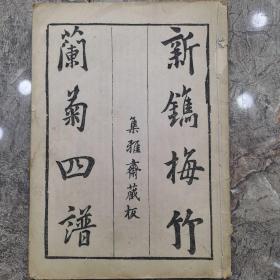 新鐫梅竹
蘭菊四譜
集雅齋藏板